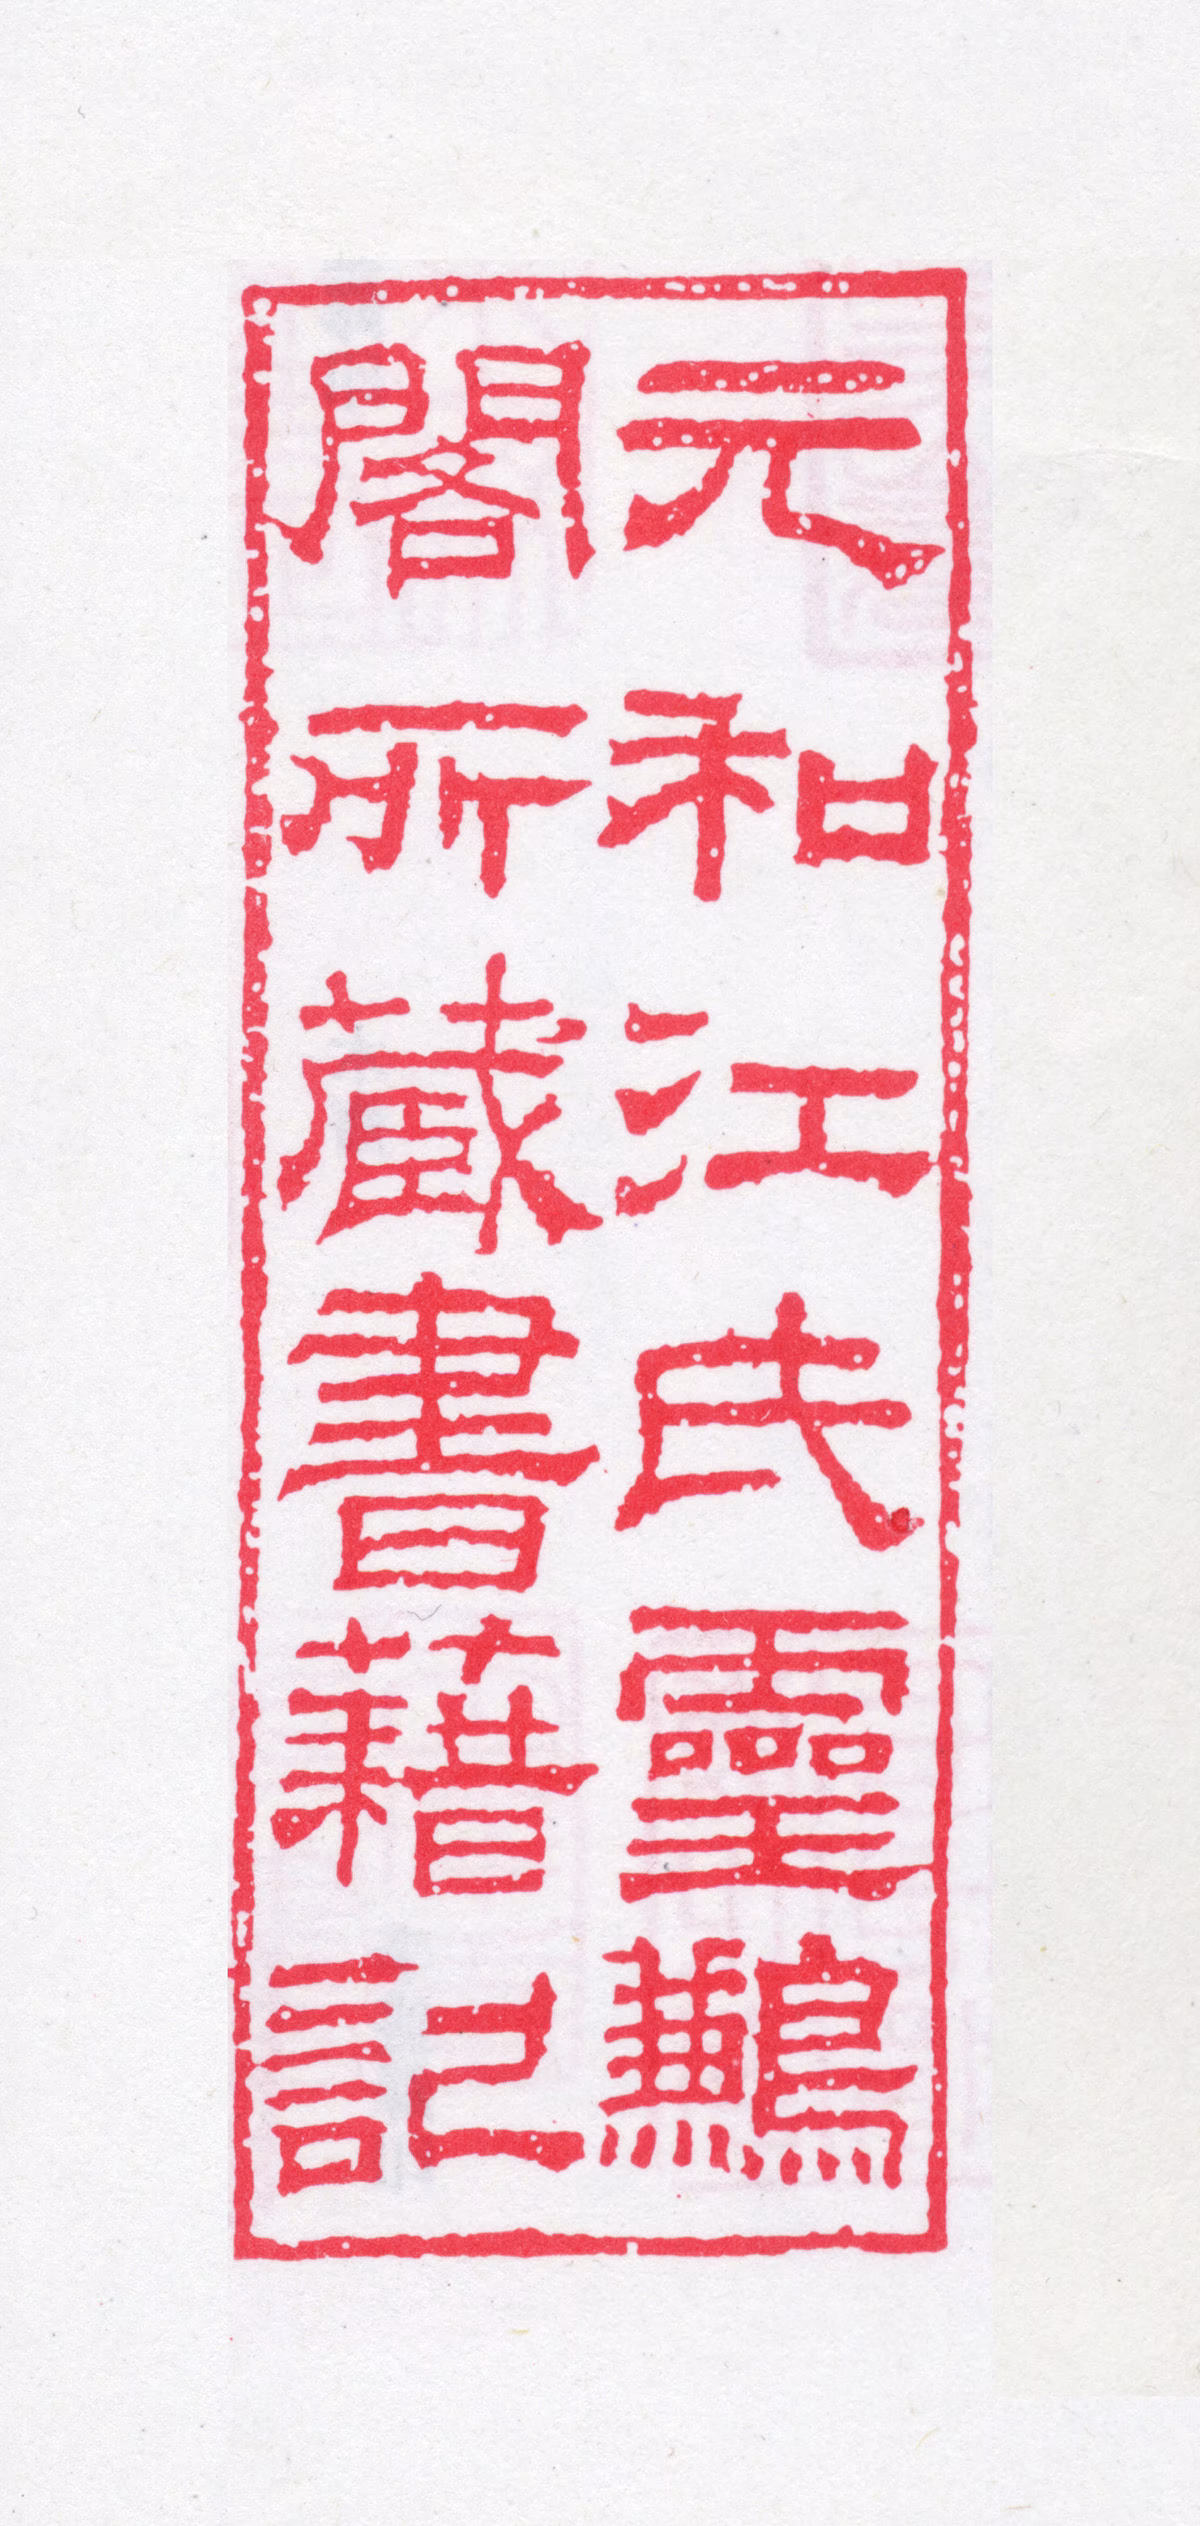 元和江氏靈鶼
閣所藏書籍記